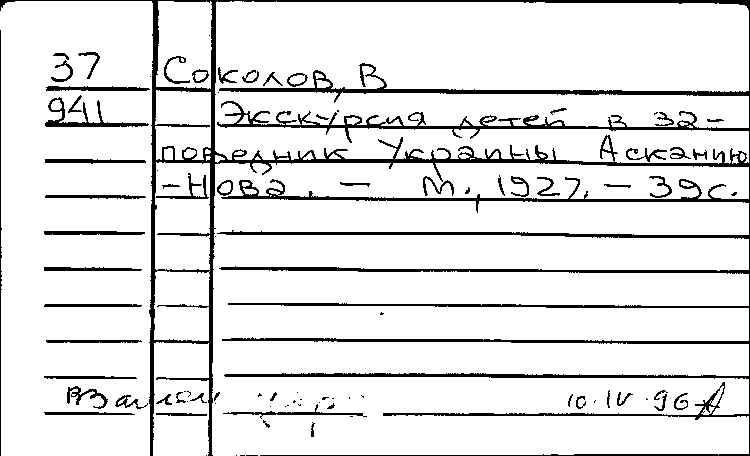 37 Соколов, В
941 Экскурсия детей в за-
поведник Украины Асканию
-Нова. — М., 1927. — 39с.
взамен 10.IV.96